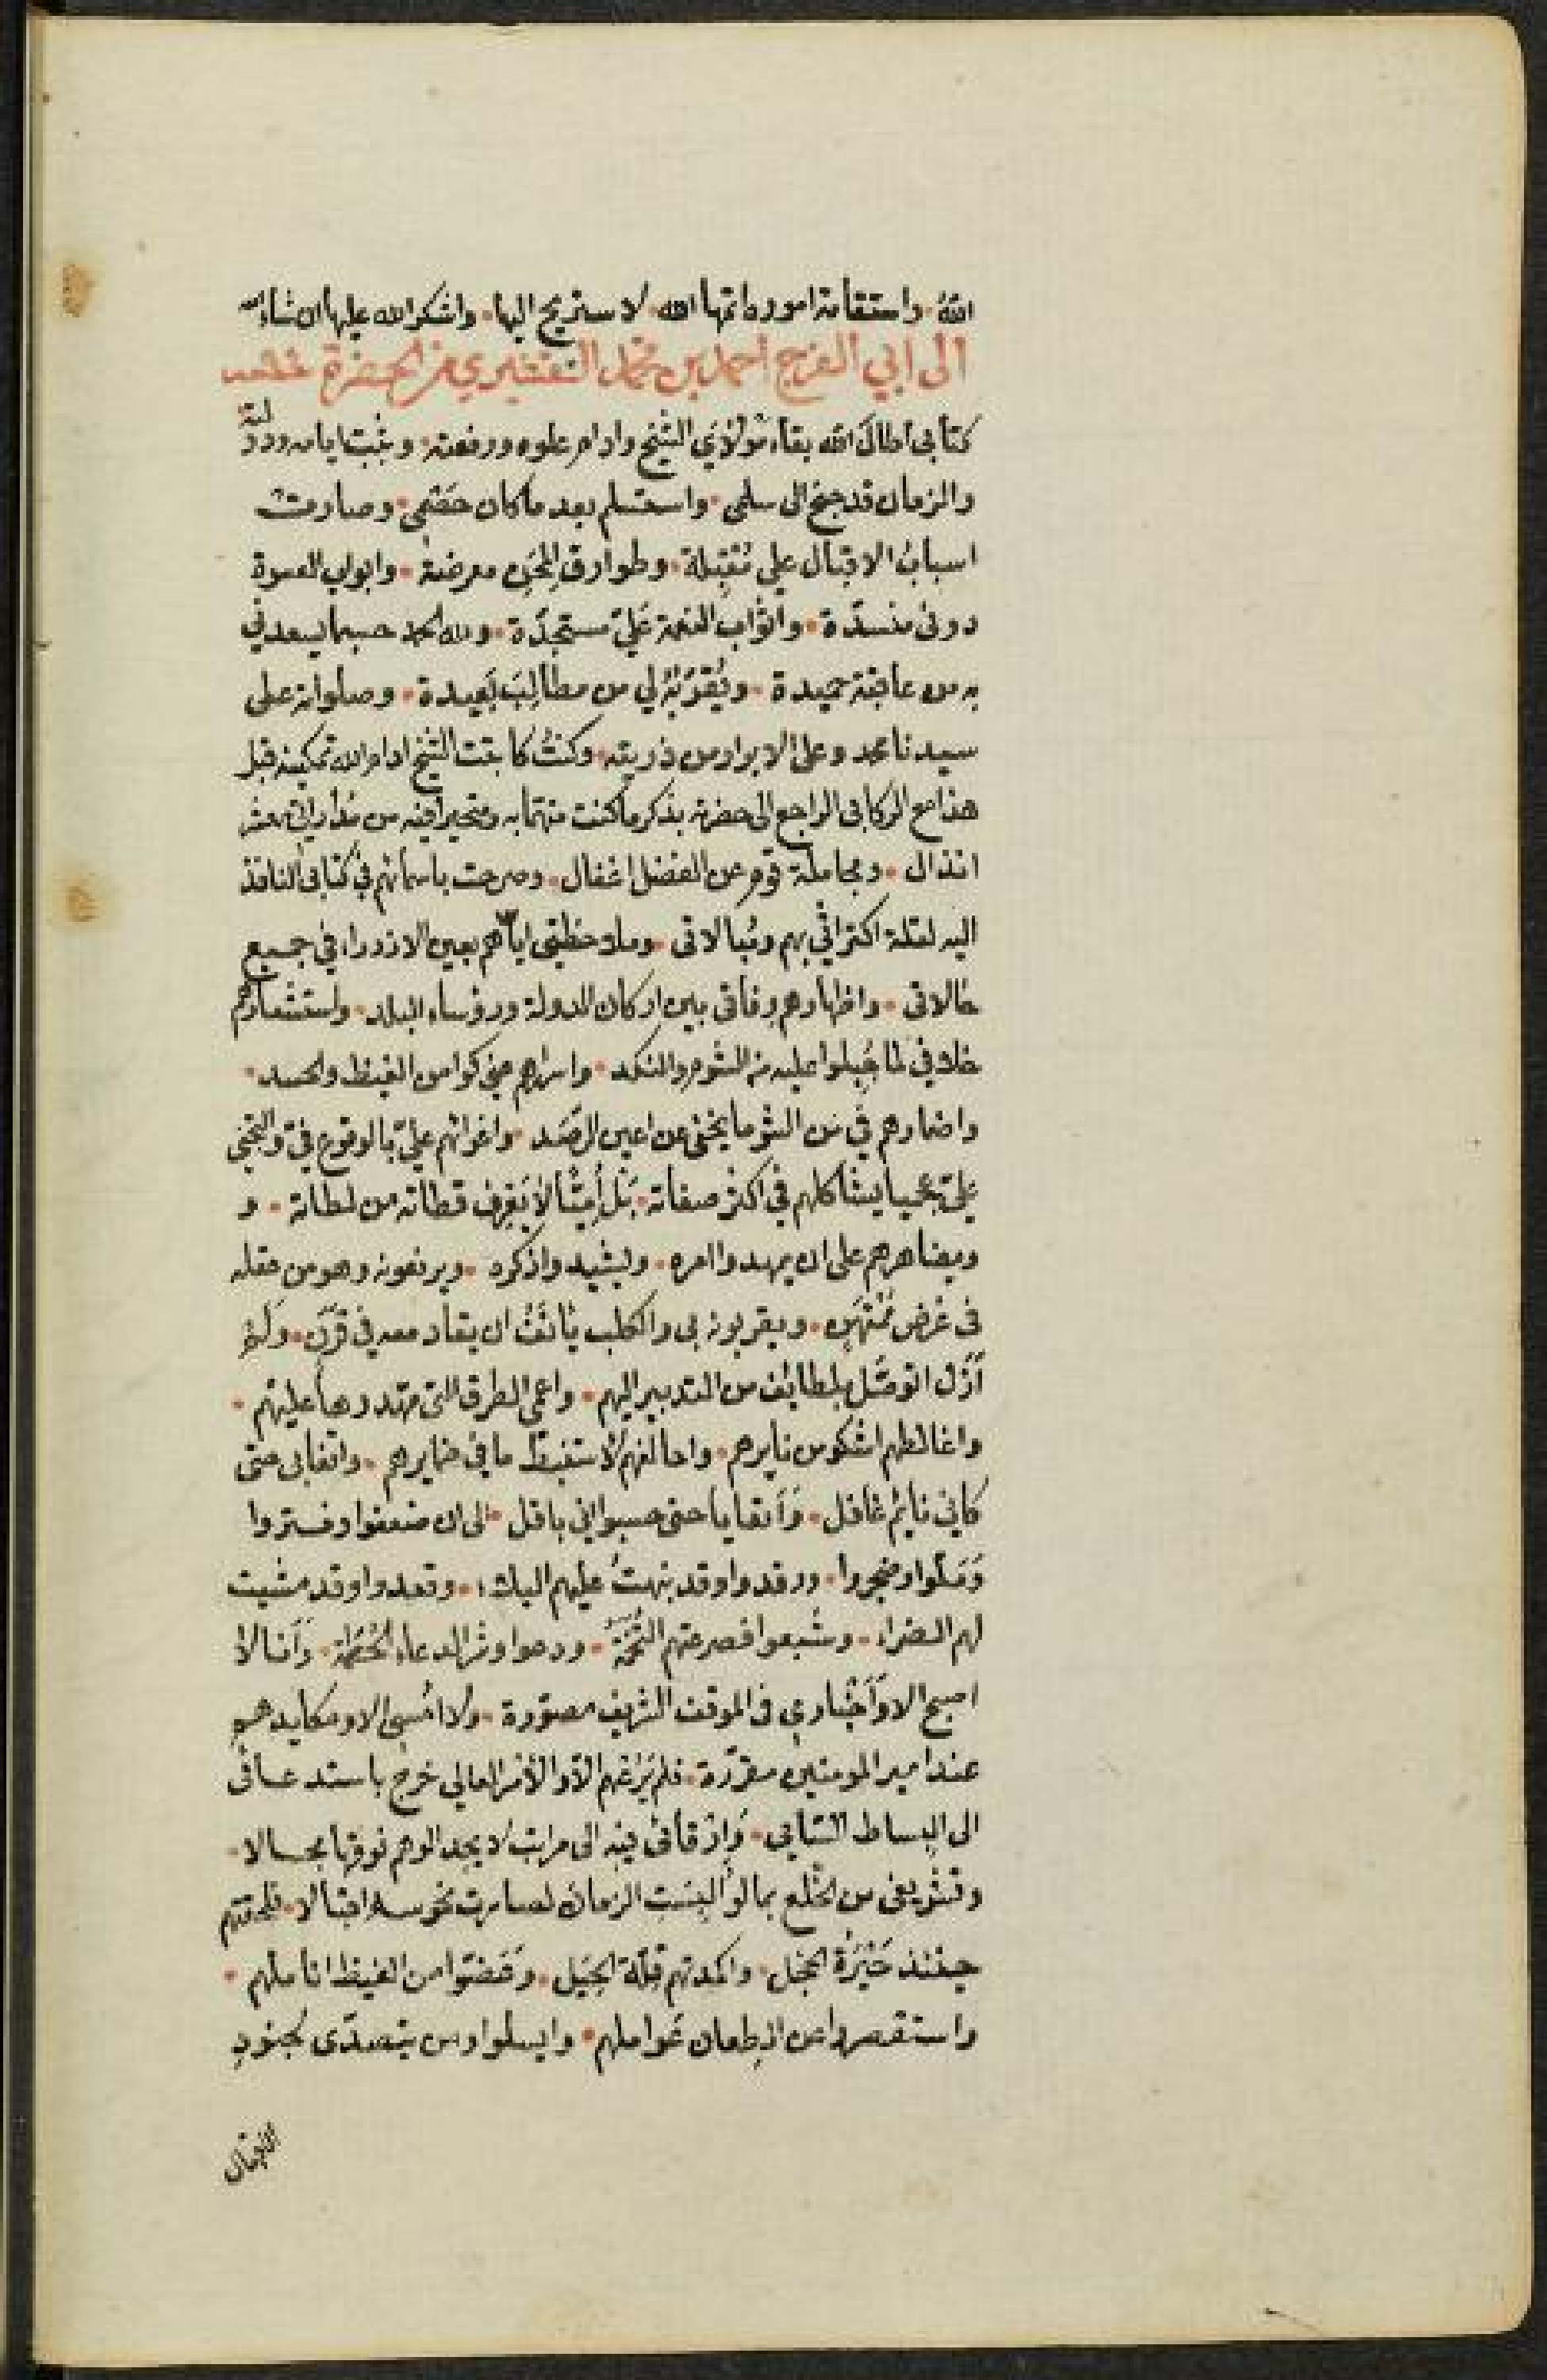 الله، واستقامة اموره اتمها الله، لاستريح اليها، واشكر الله عليها ان شاء الله
الى ابي الفرج احمد بن محمد من الحضرة
كتابي اطال الله بقاء مولاي الشيخ وادام علوه ورفعته، وثبت ايامه ودولته
والزمان قد جنح الى سلمى، واستسلم بعد ما كان خصمي، وصارت
اسباب الاقبال علي مُقبِلة، وطوارق المحن معرضة، وابواب العسرة
دوني منسدّة، واثواب النعمة عليّ مستجدّة، ولله الحمد حسبما يسعدني
به من عاقبة حميدة، ويُقرّبه لي من مطالِبَ بَعيدة، وصلواته على
سيدنا محمد وعلى الابرار من ذريته، وكنتُ كاتبت الشيخ ادام الله تمكينه قبل
هذا مع الركابي الراجع الى حضرته بذكر ما كنت منهتما به ومتحيرا فيه من مداراة معشر
انذال، ومجاملة قوم عن الفضل اغفال، وصرحت باسمائهم في كتابي النافذ
اليه لقلة اكتراثي بهم ومُبالاتي، وملاحظتي اياهم بعين الازدراء في جميع
حالاتي، واظهارهم وفاقي بين اركان الدولة ورؤساء البلد، واستشعارهم
خلافي لما جُبِلوا عليه من الشوم والنكد، واسرارهم من الغيظ والحسد،
واضمارهم في من السّو ما يخفى عن اعين الرصَد، واغرائهم عليّ بالوقوع فيّ والتجني
عليّ عجميا يشاكلهم في اكثر صفاته، بَل لا يَعرف قطاته من لطاته، و
ويضاهرهم على ان يمهدوا امره، ويشيدوا ذكره، ويرفعونه وهو من عقله
في غرض مُمتهَن، ويقربونه بي والكلب يأنَفُ ان يقاد معه في قَرَن، ولم
أزَل اتوصّل بلطايف من التدبير اليهم، واعمي الطرق التي مهّدوها عليهم،
واغالطهم اشكو من نايرهم، واحالفهم لاستنبط ما في ضمايرهم، واتغابى حتى
كاني نايم غافل، وَأتعايا حتى حسبوا اني باقل، الى ان ضعفوا وفتروا
وَمَلّوا وضجروا، ورقدوا وقد نبهتُ عليهم البلاء، وقعدوا وقد مشيت
لهم الضراء، وشبعوا فصرعتهم التُّخَمَةُ، ودعوا وشر الدعاء الحُطَمَة، وَأنا لا
اصبح الا وَأخباري في الموقف الشريف مصوّرة، ولا اُمسي الا ومكايدهم
عند امير المومنين مقرّرة، فلم يَرُعهم الّا والأمر العالي خرج باستدعائي
الى البساط السّامي، وَارتقائى فيه الى مراتب لا يجد الوهم فوقها مجالا،
وتشريفي من الخلع بما لو اُلبِسَت الزمان لصارت نحوسه اقبالا، فلحقتهم
حينئذ حَيْرَة الخجل، واكمدتهم قِلّة الحِيَل، وَعَضّوا من الغيظ اناملهم،
واستقصروا عن الطعان عَواملهم، وايسلوا ومن يتصدّى لجنودِ